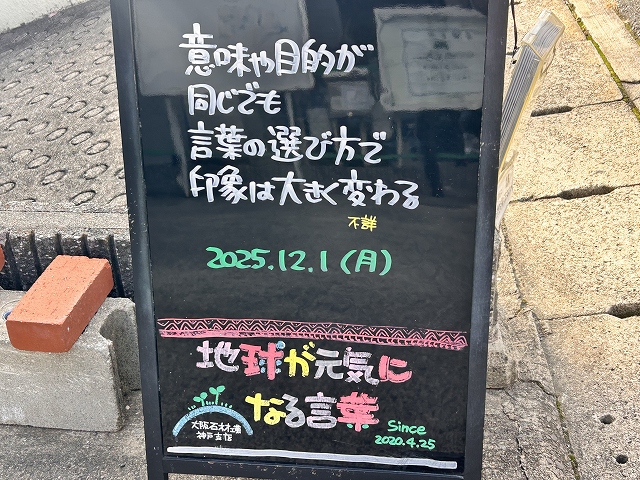 意味や目的が
同じでも
言葉の選び方で
印象は大きく変わる
不詳
2025.12.1(月)
地球が元気に
なる言葉
大阪石材工業
神戸支店
Since
2020.4.25